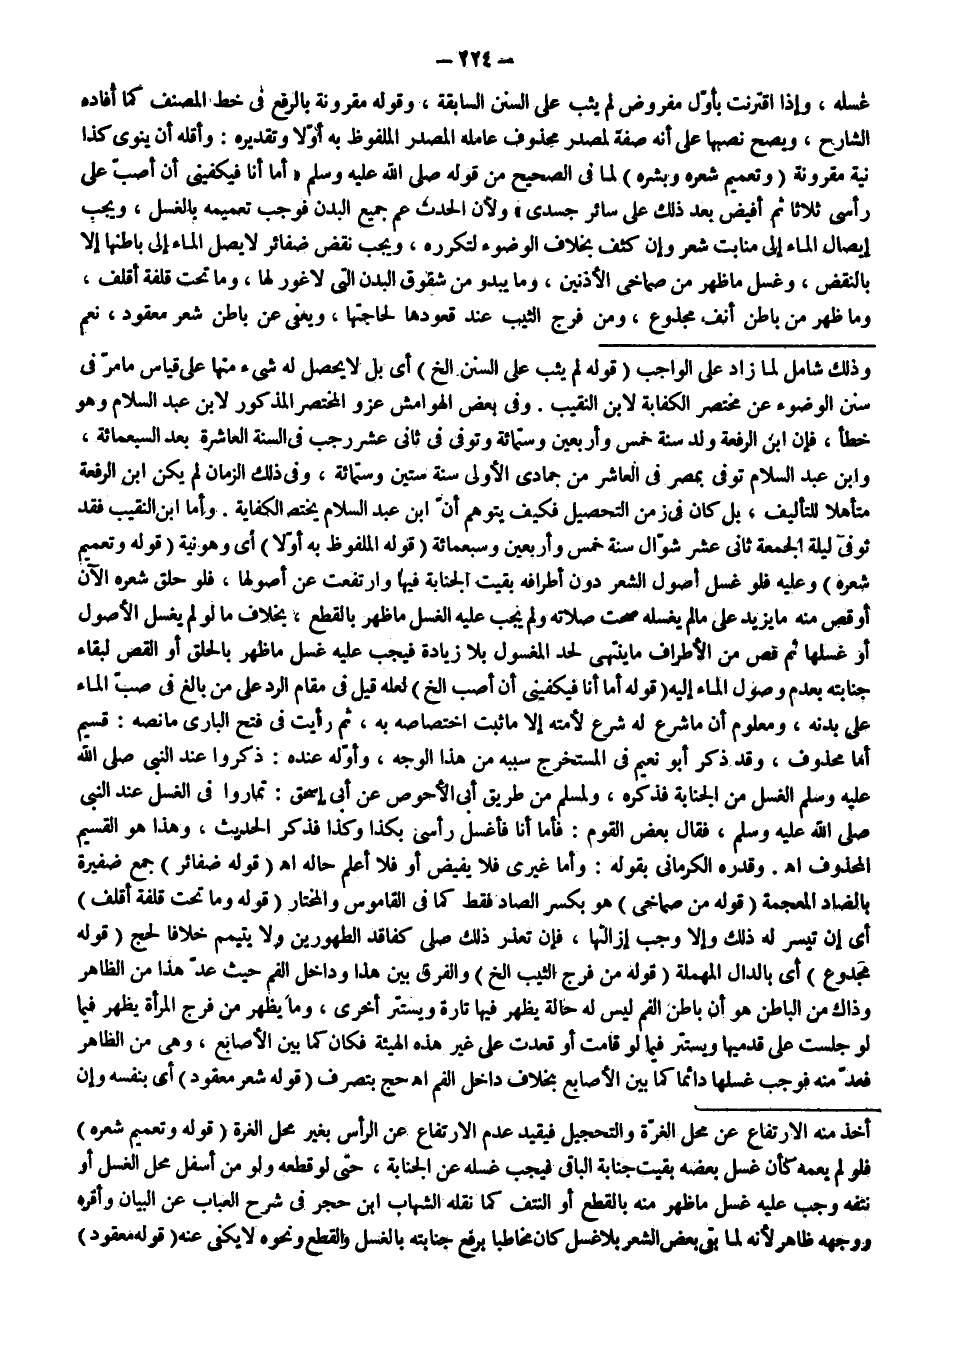 – ٢٢٤ –
غسله ، وإذا اقترنت بأوّل مفروض لم يثب على السنن السابقة ، وقوله مقرونة بالرفع فى خط المصنف كما أفاده
الشارح ، ويصح نصبها على أنه صفة لمصدر محذوف عامله المصدر الملفوظ به أوّلا وتقديره : وأقله أن ينوى كذا
نية مقرونة ( وتعميم شعره وبشره ) لما فى الصحيح من قوله صلى الله عليه وسلم « أما أنا فيكفينى أن أصبّ على
رأسى ثلاثا ثم أفيض بعد ذلك على سائر جسدى » ولأن الحدث عم جميع البدن فوجب تعميمه بالغسل ، ويجب
إيصال الماء إلى منابت شعر وإن كثف بخلاف الوضوء لتكرره ، ويجب نقض ضفائر لايصل الماء إلى باطنها إلا
بالنقض ، وغسل ماظهر من صماخى الأذنين ، وما يبدو من شقوق البدن التى لاغور لها ، وما تحت قلفة أقلف ،
وما ظهر من باطن أنف مجدوع ، ومن فرج الثيب عند قعودها لحاجتها ، ويعفى عن باطن شعر معقود ، نعم
وذلك شامل لما زاد على الواجب ( قوله لم يثب على السنن الخ ) أى بل لايحصل له شىء منها على قياس مامرّ فى
سنن الوضوء عن مختصر الكفاية لابن النقيب . وفى بعض الهوامش عزو المختصر المذكور لابن عبد السلام وهو
خطأ ، فإن ابن الرفعة ولد سنة خمس وأربعين وستمائة وتوفى فى ثانى عشر رجب فى السنة العاشرة بعد السبعمائة ،
وابن عبد السلام توفى بمصر فى العاشر من جمادى الأولى سنة ستين وستمائة ، وفى ذلك الزمان لم يكن ابن الرفعة
متأهلا للتأليف ، بل كان فى زمن التحصيل فكيف يتوهم أنّ ابن عبد السلام يختصر الكفاية . وأما ابن النقيب فقد
توفى ليلة الجمعة ثانى عشر شوّال سنة خمس وأربعين وسبعمائة ( قوله الملفوظ به أوّلا ) أى وهو نية ( قوله وتعميم
شعره ) وعليه فلو غسل أصول الشعر دون أطرافه بقيت الجنابة فيها وارتفعت عن أصولها ، فلو حلق شعره الآن
أو قص منه مايزيد على مالم يغسله صحت صلاته ولم يجب عليه الغسل ماظهر بالقطع ، بخلاف ما لو لم يغسل الأصول
أو غسلها ثم قص من الأطراف ماينتهى لحد المغسول بلا زيادة فيجب عليه غسل ماظهر بالحلق أو القص لبقاء
جنابته بعدم وصول الماء إليه ( قوله أما أنا فيكفينى أن أصب الخ ) لعله قيل فى مقام الرد على من بالغ فى صبّ الماء
على بدنه ، ومعلوم أن ماشرع له شرع لأمته إلا ماثبت اختصاصه به ، ثم رأيت فى فتح البارى مانصه : قسيم
أما محذوف ، وقد ذكر أبو نعيم فى المستخرج سببه من هذا الوجه ، وأوّله عنده : ذكروا عند النبى صلى الله
عليه وسلم الغسل من الجنابة فذكره ، ولمسلم من طريق أبى الأحوص عن أبى إسحق : تماروا فى الغسل عند النبى
صلى الله عليه وسلم ، فقال بعض القوم : فأما أنا فأغسل رأسى بكذا وكذا فذكر الحديث ، وهذا هو القسيم
المحذوف اه . وقدره الكرمانى بقوله : وأما غيرى فلا يفيض أو فلا أعلم حاله اه ( قوله ضفائر ) جمع ضفيرة
بالضاد المعجمة ( قوله من صماخى ) هو بكسر الصاد فقط كما فى القاموس والمختار ( قوله وما تحت قلفة أقلف )
أى إن تيسر له ذلك وإلا وجب إزالتها ، فإن تعذر ذلك صلى كفاقد الطهورين ولا يتيمم خلافا لحج ( قوله
مجدوع ) أى بالدال المهملة ( قوله من فرج الثيب الخ ) والفرق بين هذا وداخل الفم حيث عدّ هذا من الظاهر
وذاك من الباطن هو أن باطن الفم ليس له حالة يظهر فيها تارة ويستتر أخرى ، وما يظهر من فرج المرأة يظهر فيما
لو جلست على قدميها ويستتر فيما لو قامت أو قعدت على غير هذه الهيئة فكان كما بين الأصابع ، وهى من الظاهر
فعدّ منه فوجب غسلها دائما كما بين الأصابع بخلاف داخل الفم اه حج بتصرف ( قوله شعر معقود ) أى بنفسه وإن
أخذ منه الارتفاع عن محل الغرّة والتحجيل فيقيد عدم الارتفاع عن الرأس بغير محل الغرة ( قوله وتعميم شعره )
فلو لم يعمه كأن غسل بعضه بقيت جنابة الباقى فيجب غسله عن الجنابة ، حتى لو قطعه ولو من أسفل محل الغسل أو
نتفه وجب عليه غسل ماظهر منه بالقطع أو النتف كما نقله الشهاب ابن حجر فى شرح العباب عن البيان وأقره
ووجهه ظاهر لأنه لما بقى بعض الشعر بلا غسل كان مخاطبا برفع جنابته بالغسل والقطع ونحوه لا يكفى عنه ( قوله معقود )